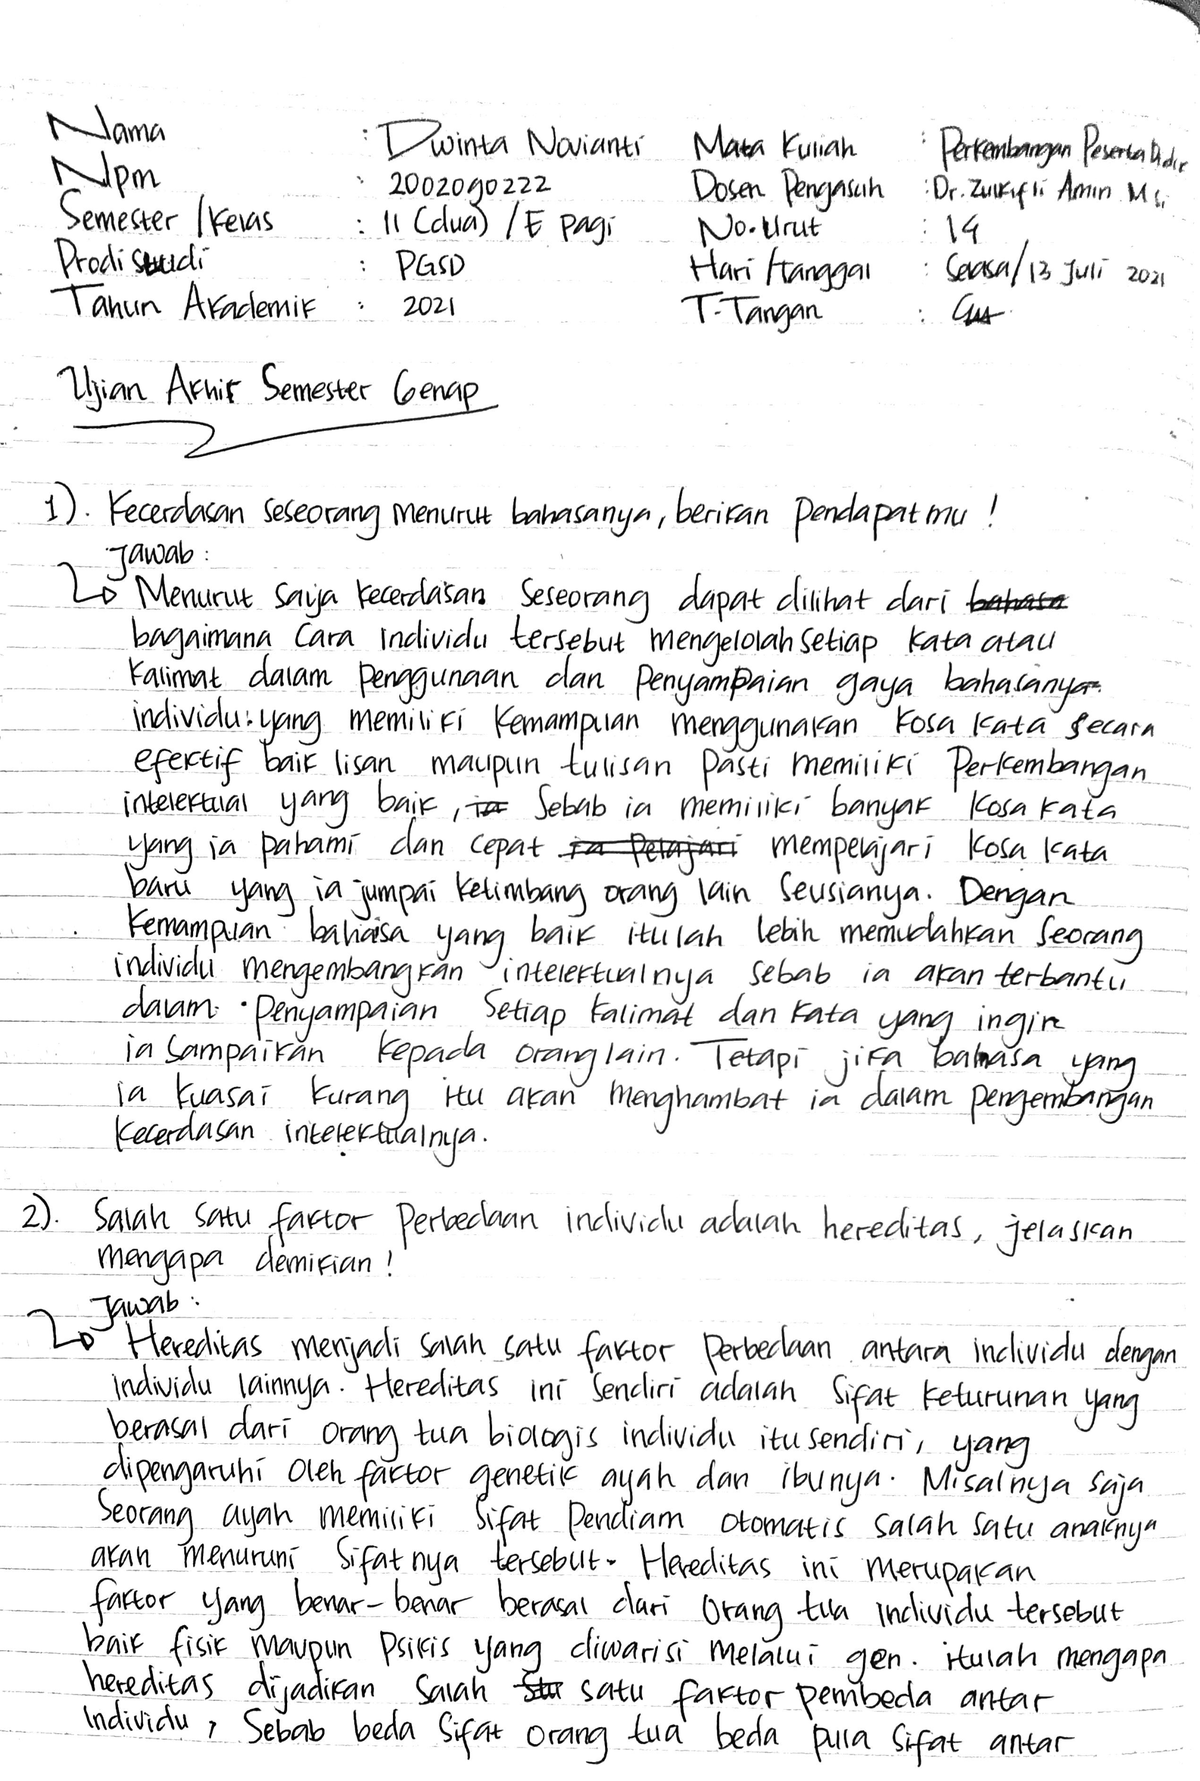 Nama : Dwinta Novianti Mata Kuliah : Perkembangan Peserta Didik
Npm : 2002090222 Dosen Pengasuh : Dr. Zulkifli Amin M Si,
Semester / Kelas : II (dua) / E pagi No. Urut : 14
Prodi studi : PGSD Hari / tanggal : Selasa / 13 Juli 2021
Tahun Akademik : 2021 T. Tangan :
Ujian Akhir Semester Genap
1). Kecerdasan seseorang menurut bahasanya, berikan pendapatmu !
Jawab :
Menurut saya kecerdasan seseorang dapat dilihat dari bahasa
bagaimana cara individu tersebut mengelolah setiap kata atau
kalimat dalam penggunaan dan penyampaian gaya bahasanya
individu yang memiliki kemampuan menggunakan kosa kata secara
efektif baik lisan maupun tulisan pasti memiliki perkembangan
intelektual yang baik, ia sebab ia memiliki banyak kosa kata
yang ia pahami dan cepat ia pelajari mempelajari kosa kata
baru yang ia jumpai ketimbang orang lain seusianya. Dengan
kemampuan bahasa yang baik itulah lebih memudahkan seorang
individu mengembangkan intelektualnya sebab ia akan terbantu
dalam penyampaian setiap kalimat dan kata yang ingin
ia sampaikan kepada orang lain. Tetapi jika bahasa yang
ia kuasai kurang itu akan menghambat ia dalam pengembangan
kecerdasan intelektualnya.
2). Salah satu faktor perbedaan individu adalah hereditas, jelaskan
mengapa demikian !
Jawab :
Hereditas menjadi salah satu faktor perbedaan antara individu dengan
individu lainnya. Hereditas ini sendiri adalah sifat keturunan yang
berasal dari orang tua biologis individu itu sendiri, yang
dipengaruhi oleh faktor genetik ayah dan ibunya. Misalnya saja
seorang ayah memiliki sifat pendiam otomatis salah satu anaknya
akan menuruni sifatnya tersebut. Hereditas ini merupakan
faktor yang benar-benar berasal dari orang tua individu tersebut
baik fisik maupun psikis yang diwarisi melalui gen. itulah mengapa
hereditas dijadikan salah satu faktor pembeda antar
individu, sebab beda sifat orang tua beda pula sifat antar